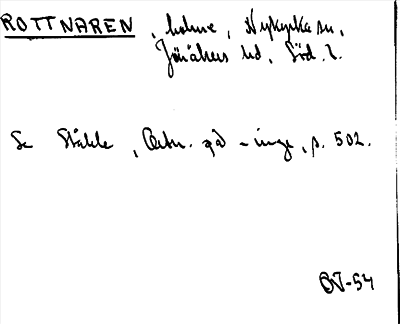 ROTTNAREN, holme, Nykyrka sn,
Jönåkers hd, Söd. l.
Se Ståhle, Ortn. på -inge, p. 502.
OJ-54